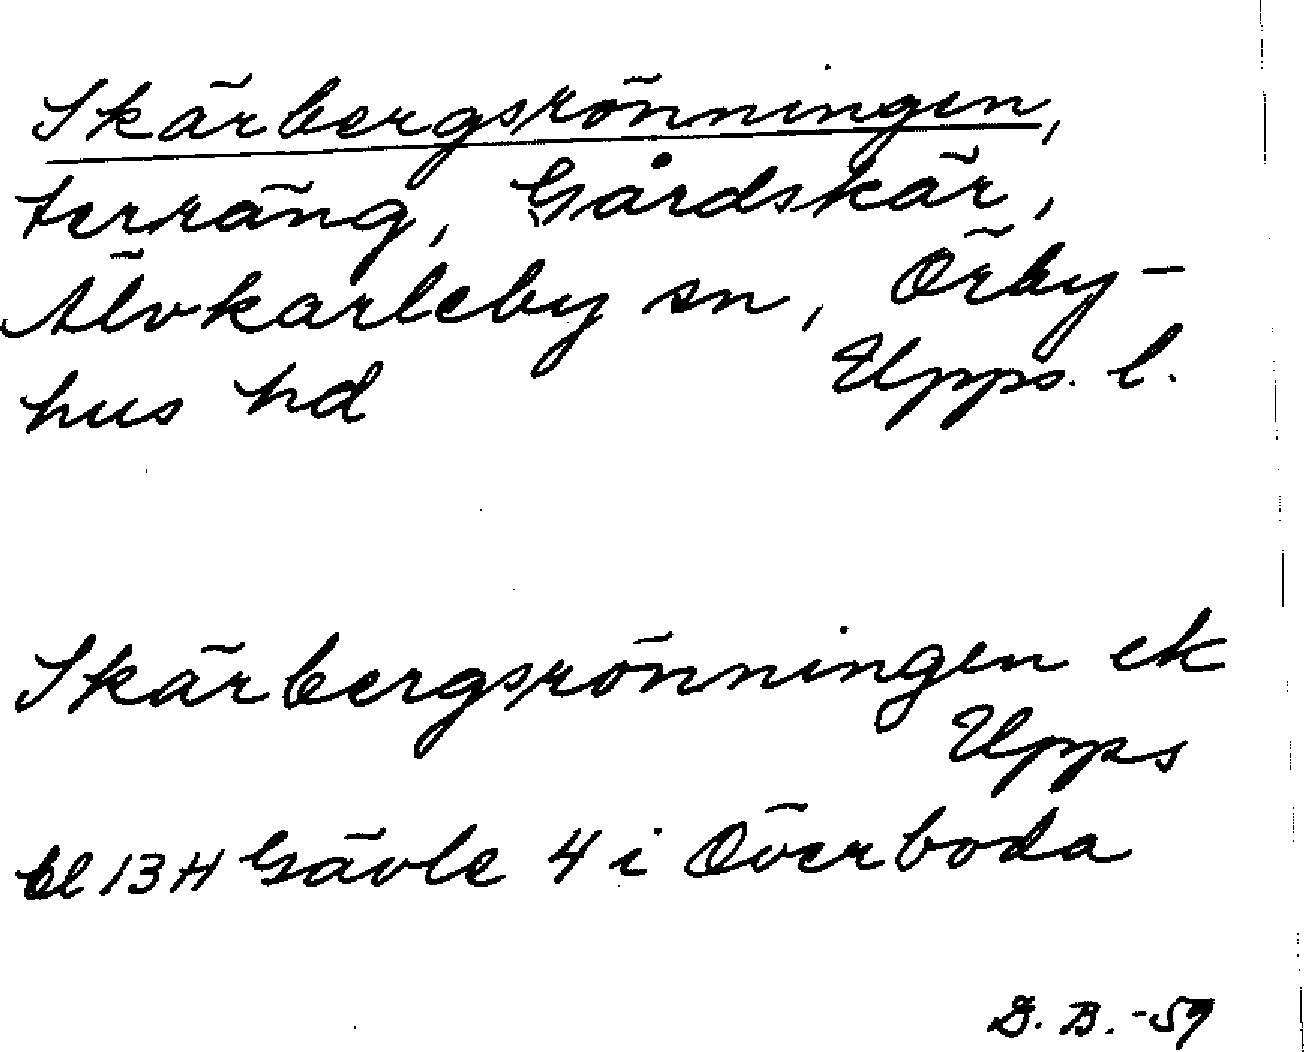 Skärbergsrönningen,
terräng, Gårdskär,
Älvkarleby sn, Örby-
hus hd Upps. l.
Skärbergsrönningen ek
Upps
bl 13 H Gävle 4 i Överboda
G. B. -59